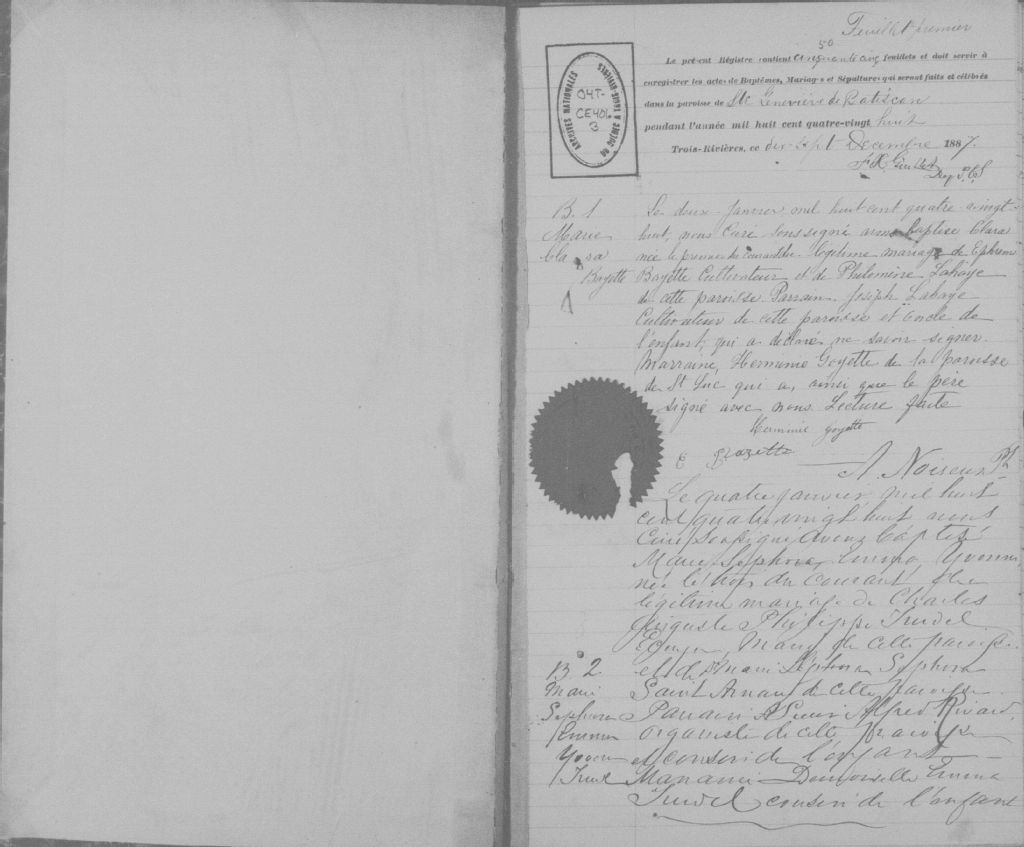 Feuillet premier
50
Le présent Régistre contient cinquante cinq feuillets et doit servir à
enregistrer les actes de Baptêmes, Mariages et Sépultures qui seront faits et célébrés
dans la paroisse de Ste Geneviève de Batiscan
pendant l'année mil huit cent quatre-vingt huit
Trois-Rivières, ce dix sept Decembre 1887.
Dep P.C.S
ARCHIVES NATIONALES
DU QUÉBEC À TROIS-RIVIÈRES
04T-
CE401.
3
B. 1
Marie
Cla sa
Bayette
1
Le deux Janvier mil huit cent quatre vingt-
huit, nous Curé soussigné avons baptisé Clara
née le premier du courant du légitime mariage de Ephrem
Bayette Cultivateur et de Philomène Lahaye
de cette paroisse. Parrain, Joseph Lahaye
Cultivateur de cette paroisse et oncle de
l'enfant, qui a déclaré ne savoir signer.
Marraine, Herminie Goyette de la paroisse
de St Luc qui a, ainsi que le père
signé avec nous. Lecture faite
Herminie goyette
E
A. Noiseux Ptr
Le quatre janvier mil huit
cent quatre vingt huit nous
Curé soussigné avons baptisé
Marie Sephora Emma Yvonne
née le trois du courant du
légitime mariage de Charles
Auguste Philippe Trudel
Ecuyer, Maire de cette paroisse
et de Marie Sephora Sephora
Saint Arnaud de cette paroisse
B. 2
Marie
Sephora
Emma
Yvonne
Trudel
Parrain Sieur Alfred Rivard,
organiste de cette paroisse
et cousin de l'enfant
Marraine Demoiselle Emma
Trudel cousine de l'enfant